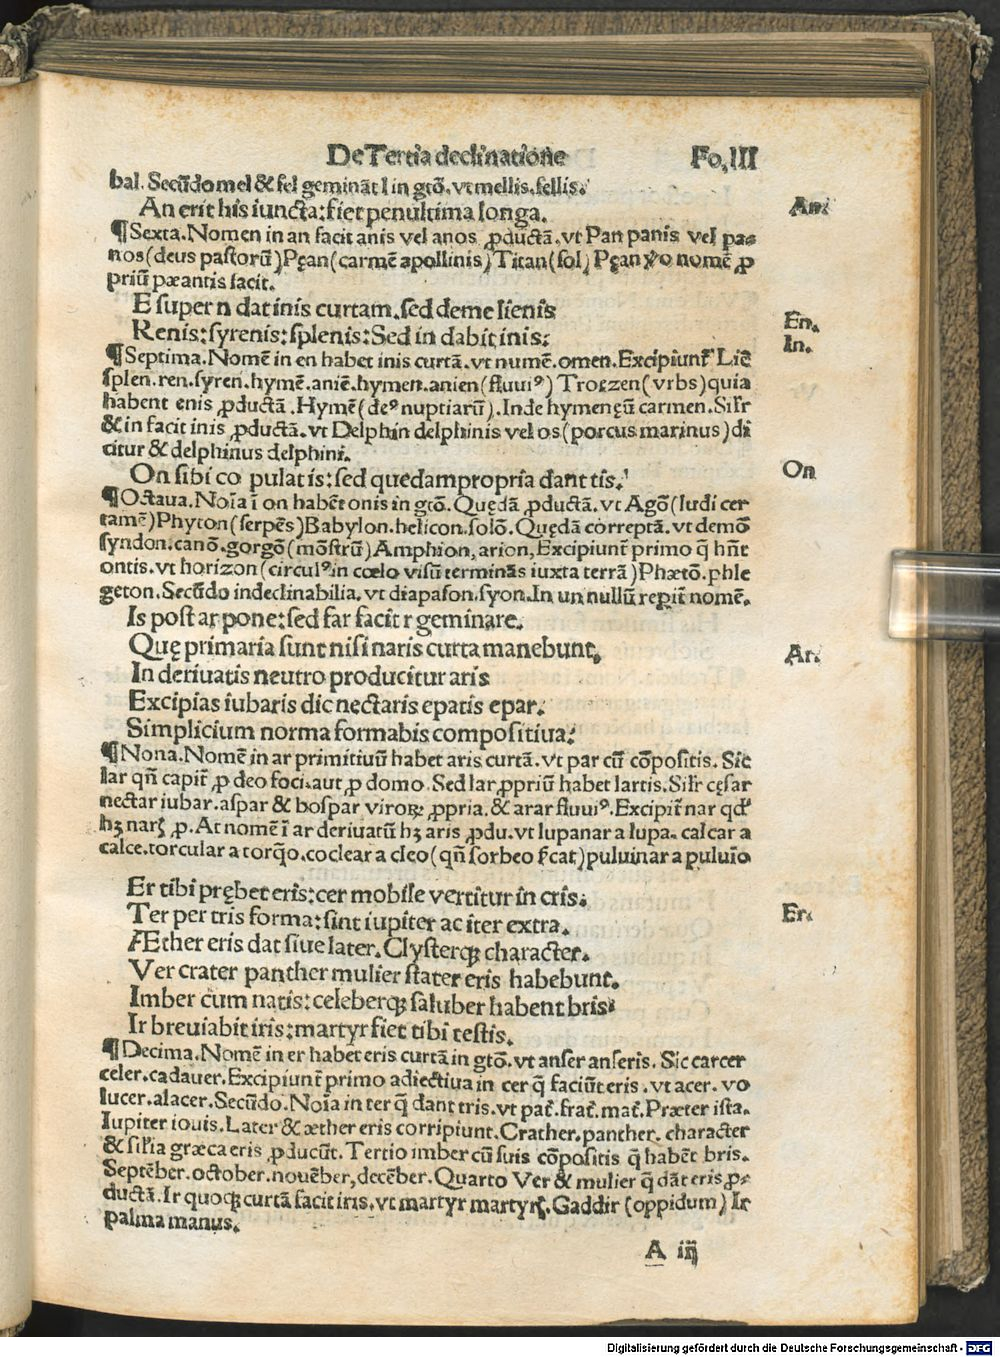 De Tertia declinatione Fo.III
bal. Secūdo mel & fel geminãt l in gtõ. vt mellis. fellis.
An erit his iuncta: fiet penultima longa. An.
¶ Sexta. Nomen in an facit anis vel anos ꝓductã. vt Pan panis vel pa⸗
nos (deus pastorū) Pęan (carmē apollinis) Titan (sol) Pęan ꝟo nomē ꝓ
priū pæantis facit.
E super n dat inis curtam. sed deme lienis En.
Renis: syrenis: splenis: Sed in dabit inis: In.
¶ Septima. Nomē in en habet inis curtã. vt numē. omen. Excipiunt̃ Liē
splen. ren. syren. hymē. aniē. hymen. anien (fluui⁹) Troezen (vrbs) quia
habent enis ꝓductã. Hymē (de⁹ nuptiarū). Inde hymenęū carmen. Sil̃r
& in facit inis ꝓductã. vt Delphin delphinis vel os (porcus marinus) di
citur & delphinus delphini.
On sibi co pulat is: sed quedam propria dant tis. On
¶ Octaua. Noĩa ĩ on habēt onis in gtõ. Quędã ꝓductã. vt Agõ (ludi cer
tamē) Phyton (serpēs) Babylon. helicon. solõ. Quędã correptã. vt demõ
syndon. canõ. gorgõ (mõstrū) Amphion, arion, Excipiunt̃ primo q̃ hñt
ontis. vt horizon (circul⁹ in cœlo visū terminãs iuxta terrã) Phætõ. phle
geton. Secūdo indeclinabilia. vt diapason. syon. In un nullū repit̃ nomē.
Is post ar pone: sed far facit r geminare.
Quę primaria sunt nisi naris curta manebunt. Ar.
In deriuatis neutro producitur aris
Excipias iubaris dic nectaris epatis epar.
Simplicium norma formabis compositiua.
¶ Nona. Nomē in ar primitiuū habet aris curtã. vt par cū cõpositis. Sic
lar qñ capit̃ ꝓ deo foci. aut ꝓ domo. Sed lar ꝓpriū habet lartis. Sil̃r cęsar
nectar iubar. aspar & bospar viroꝝ ꝓpria. & arar fluui⁹. Excipit̃ nar qd'
hꝫ narꝭ ꝓ. At nomē ĩ ar deriuatū hꝫ aris ꝓdu. vt lupanar a lupa. calcar a
calce. torcular a torq̃o. coclear a cleo (qñ sorbeo s̃cat) puluinar a puluĩo
Er tibi prębet eris: cer mobile vertitur in cris.
Ter per tris forma: sint iupiter ac iter extra. Er.
Æther eris dat siue later. Clysterqꝫ character.
Ver crater panther mulier stater eris habebunt.
Imber cum natis: celeberqꝫ saluber habent bris
Ir breuiabit iris: martyr fiet tibi testis.
¶ Decima. Nomē in er habet eris curtã in gtõ. vt anser anseris. Sic carcer
celer. cadauer. Excipiunt̃ primo adiectiua in cer q̃ faciūt eris. vt acer. vo
lucer. alacer. Secūdo. Noĩa in ter q̃ dant tris. vt pat̃. frat̃. mat̃. Præter ista.
Iupiter iouis. Later & æther eris corripiunt. Crather. panther. character
& sil̃ia græca eris ꝓducūt. Tertio imber cū suis cõpositis q̃ habēt bris.
Septēber. october. nouēber, decēber. Quarto Ver & mulier q̃ dãt eris ꝓ⸗
ductã. Ir quoqꝫ curtã facit iris. vt martyr martyrꝭ. Gaddir (oppidum) Ir
palma manus.
A iij
Digitalisierung gefördert durch die Deutsche Forschungsgemeinschaft - DFG